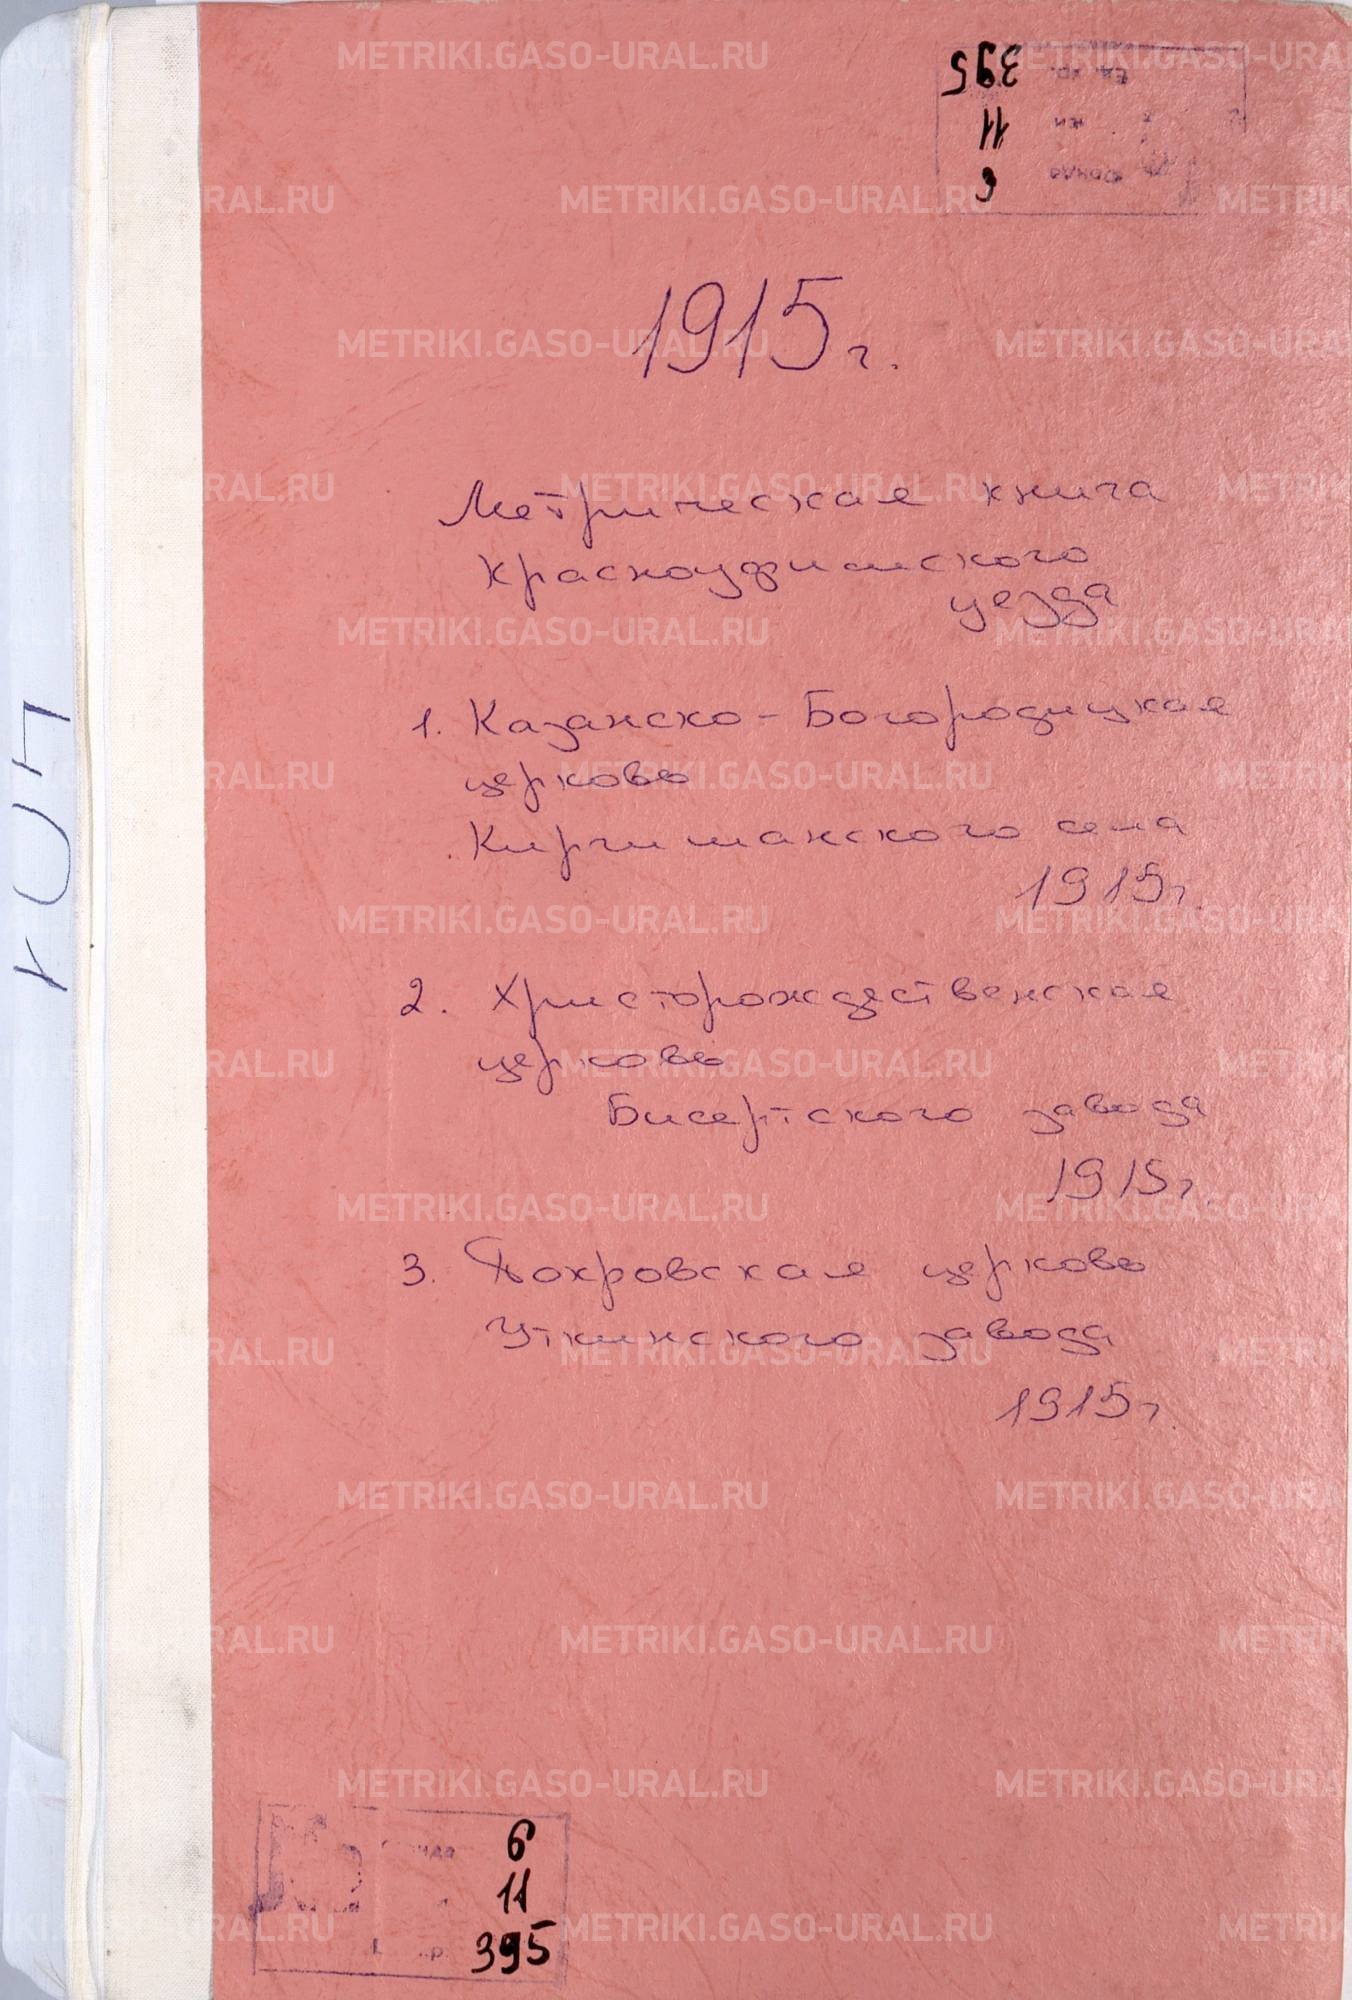 Ед. хр. 395
11
фонд 6
1915 г.
Метрическая книга
Красноуфимского
уезда
1. Казанско-Богородицкая
церковь
Киргишанского села
1915 г.
2. Христорождественская
церковь
Бисертского завода
1915 г.
3. Покровская церковь
Уткинского завода
1915 г.
6
11
395
METRIKI.GASO-URAL.RU